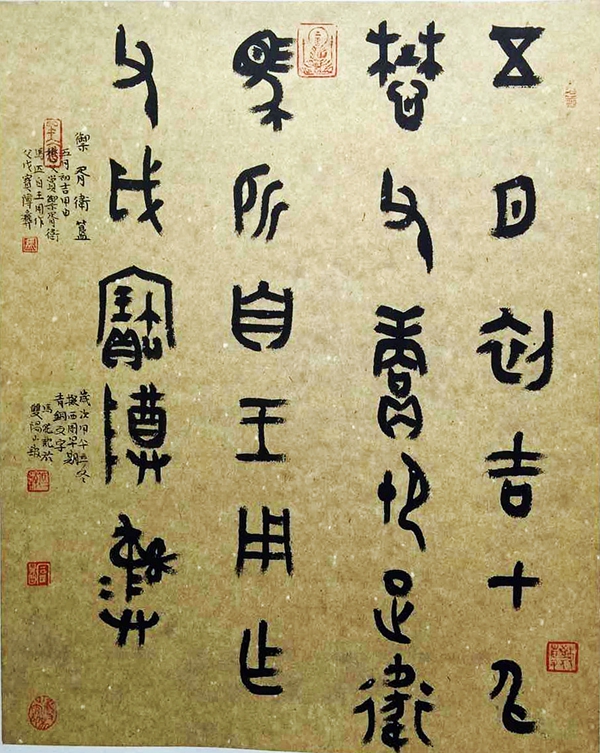 五月初吉甲申
懋父賞御足衛
馬匹自王用乍
父戊寶尊彝
禦胥衛簋
五月初吉甲申
懋父賞禦胥衛
馬匹自王用作
父戊寶尊彝
歲次甲午年冬
擬西周早期
青銅文字
於
雙陽山